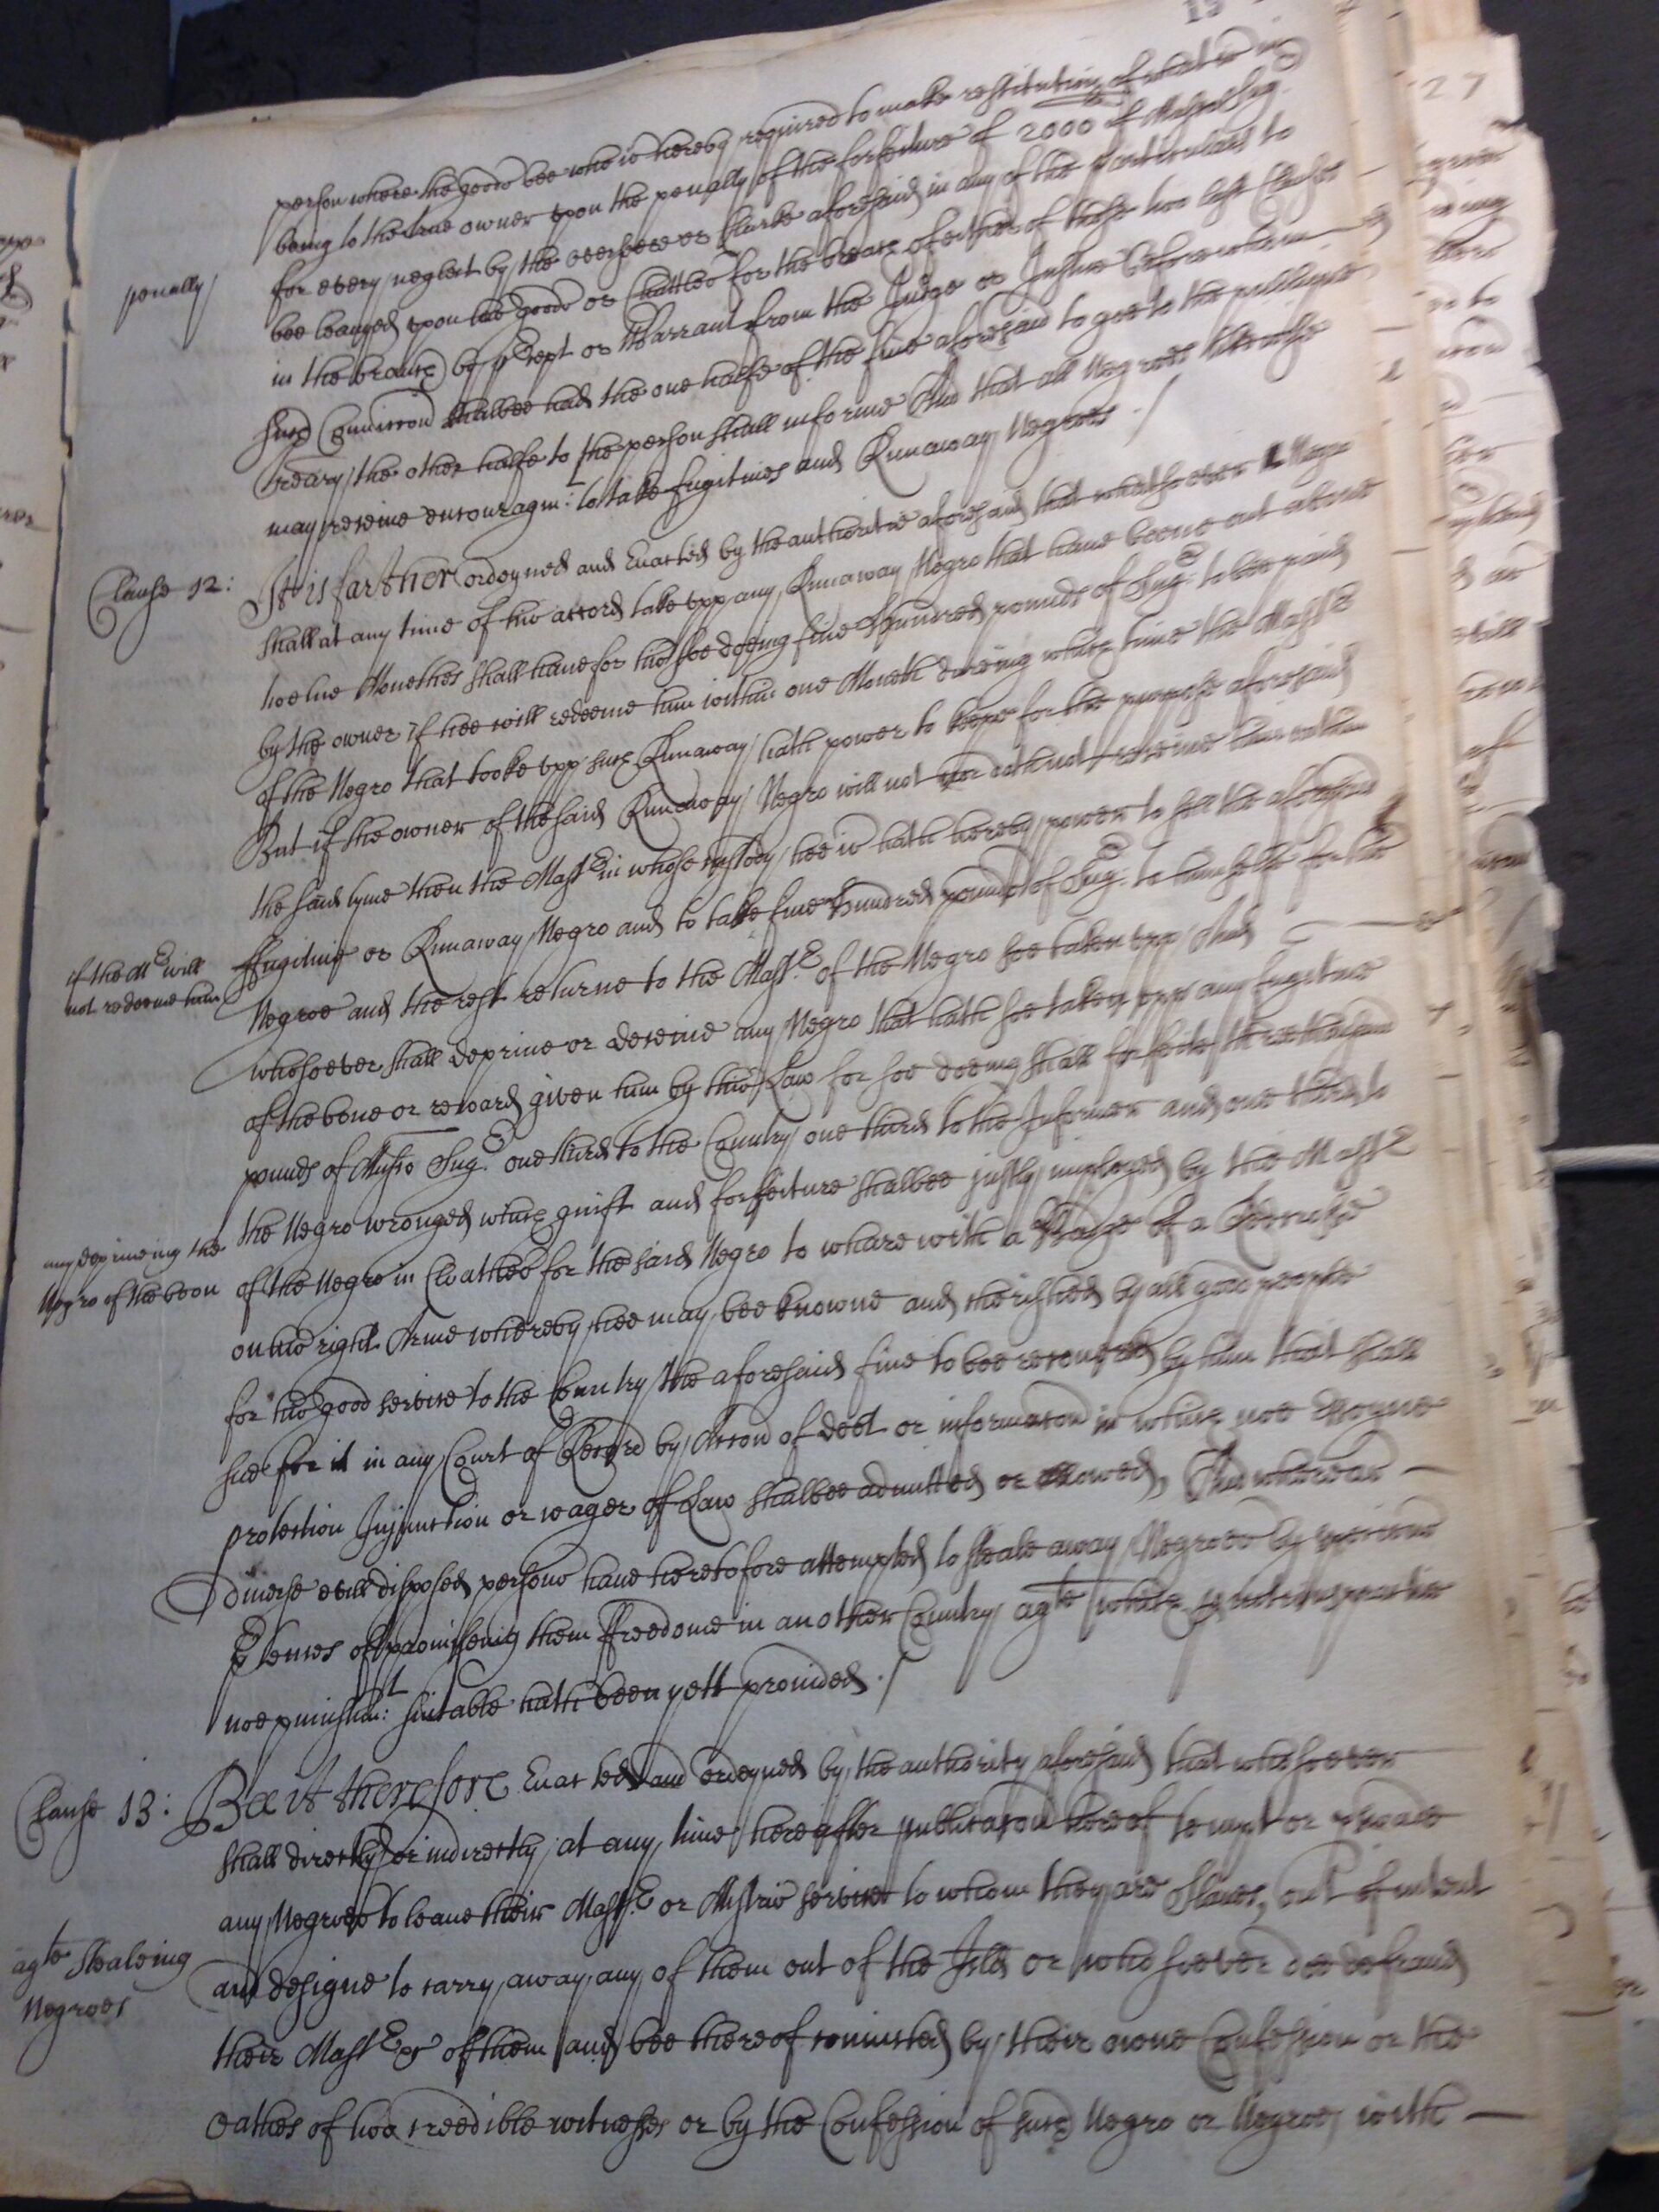 person where the goods bee who is hereby required to make restitution of what is in
being to the true owner upon the penalty of the forfeiture of 2000 l of Musco Sug:
penalty
for every neglect by the overseer or Clarke aforesaid in any of the particulars to
bee leavyed upon his goods or Chattles for the breach of either of these two last Clauses
in the branch by p cept or Warrant from the Judge or Justice before whom
such Comission shalbee had the one halfe of the fine aforesaid to goe to the publique
treary the other halfe to the person shall informe And that all Negroes likewise
may receive encouragm: to take fugitives and Runaway Negroes ./
Clause 12:
It is farther ordeyned and Enacted by the authoritie aforesaid that whatsoever Negro
shall at any time of his accord take upp any Runaway Negro that have beene out above
twelve Monethes shall have for his soe doeing five Hunnred pounds of Sug: to bee paid
by the owner if hee will redeeme him within one Moneth dureing which time the Mastr
of the Negro that tooke upp such Runaway hath power to keepe for the purpose aforesaid
But if the owner of the said Runaway Negro will not nor doth not receive him within
the said tyme then the Mastr in whose custody hee is hath hereby power to sell the aforesaid
if the Mr will
not redeeme him
ffugitive or Runaway Negro and to take five Hundred pounds of Sug: to himselfe for his
Negroe and the rest returne to the Mastr of the Negro soe taken upp And
whosoever shall deprive or deceive any Negro that hath soe taken upp any fugitive
of the bone or reward given him by this Law for soe doeing shall forfeite three thousand
pounds of Musco Sugr one third to the Country one third to the Informer and one third to
any depriveing the
Negro of the boon
the Negro wronged which guift and forfeiture shalbee justly imployed by the Mastr
of the Negro in Cloathes for the said Negro to wheare with a Badge of a
on his right Arme whereby hee may bee knowne and cherished by all good people
for his good service to the Country the aforesaid fine to bee recovered by him that shall
sue for it in any Court of Record by Accon of debt or informacon in which noe Essoyne
protection Injunction or wager of Law shalbee admitted or allowed, And whereas
diverse evill disposed persons have heretofore attempted to steale away Negroes by specious
p tences of promiseing them ffreedome in another Country agte which practise
noe punishm: suitable hath been yett provided ./
Clause 13:
Bee it therefore Enacted and ordeyned by the authority aforesaid that whosoever
shall directly or indirectly at any time hereafter publicacon hereof tempt or p swade
any Negroes to leave their Mastr or Mistris service to whom they are Slaves, out of intent
agte Stealeing
Negroes
and designe to carry away any of them out of the Isld or whosoever doe defraud
their Mastrs of them and bee thereof convicted by their owne Confession or the
oathes of two creedible witnesses or by the Confession of such Negro or Negroes with